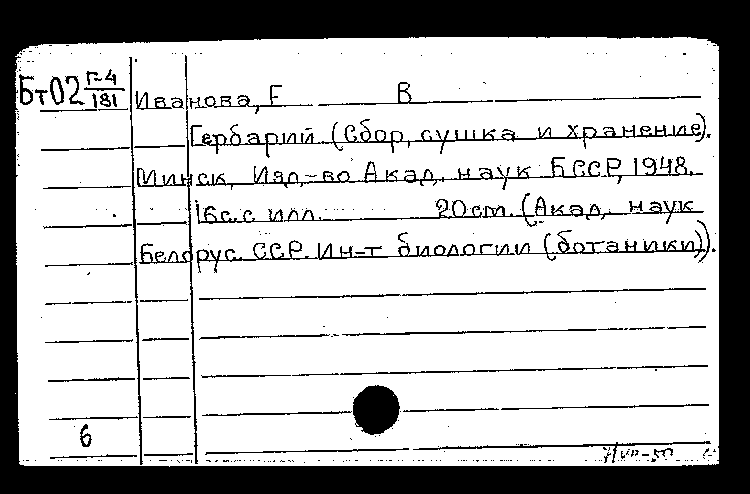 Бт02 Г-4/181
Иванова, Е В
Гербарий (Сбор, сушка и хранение).
Минск, Изд,-во Акад, наук БССР, 1948.
16с.с илл. 20cm. (Акад, наук
Белорус. ССР. Ин-т биологии (ботаники)).
6